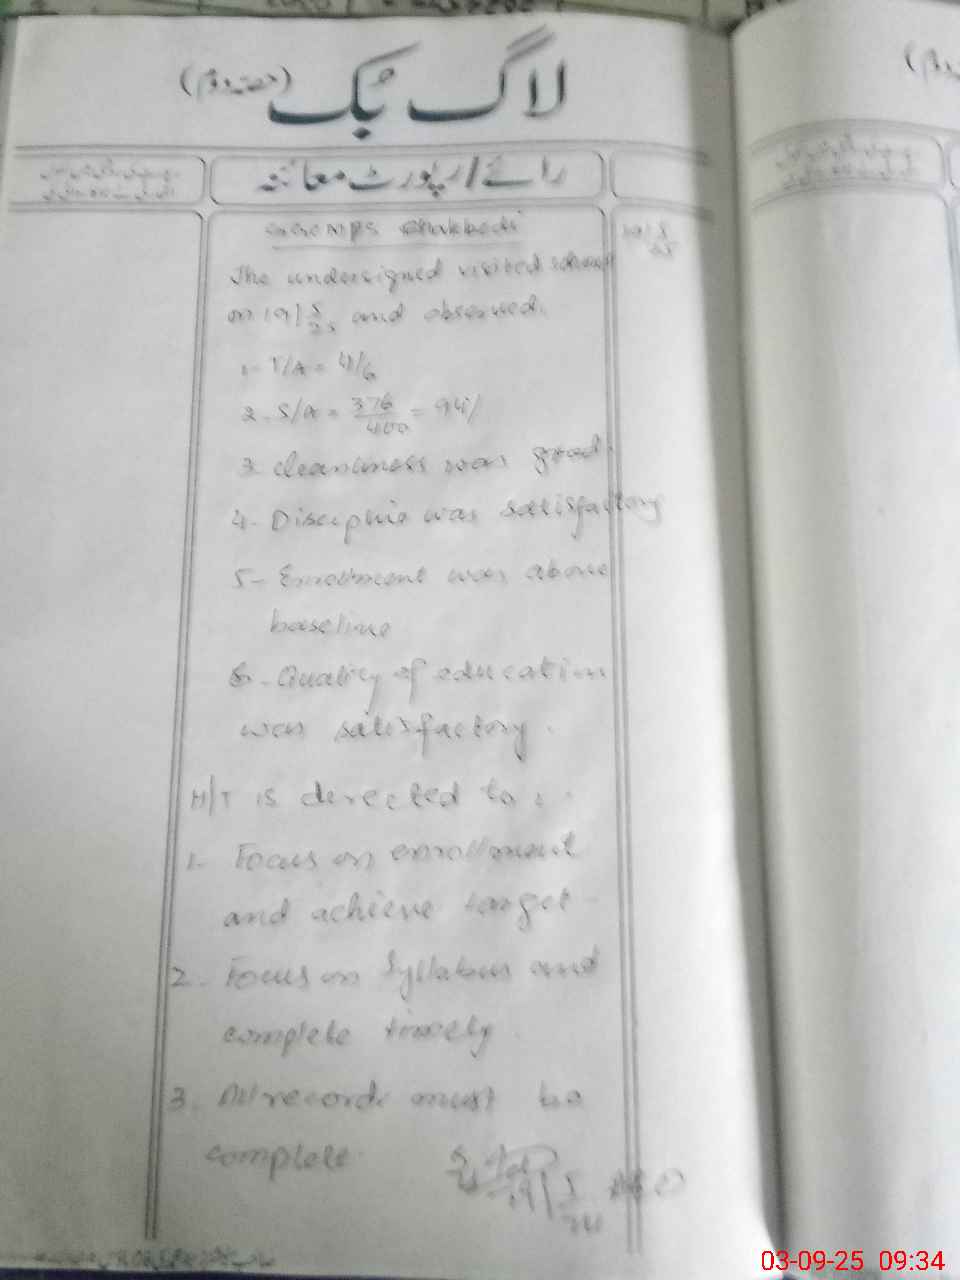 لاگ بک (حصہ دوم)
رائے/رپورٹ معائنہ
MPS Chakbedi
19/5/25
The undersigned visited school
on 19/5/25 and observed.
1- T/A = 4/6
2- S/A = 376/400 = 94%
3. cleanliness was good
4- Discipline was satisfactory
5- Enrollment was above
baseline
6- Quality of education
was satisfactory.
H/T is directed to:
1- Focus on enrollment
and achieve target-
2- Focus on Syllabus and
complete timely.
3. All record must be
complete.
AEO
03-09-25 09:34